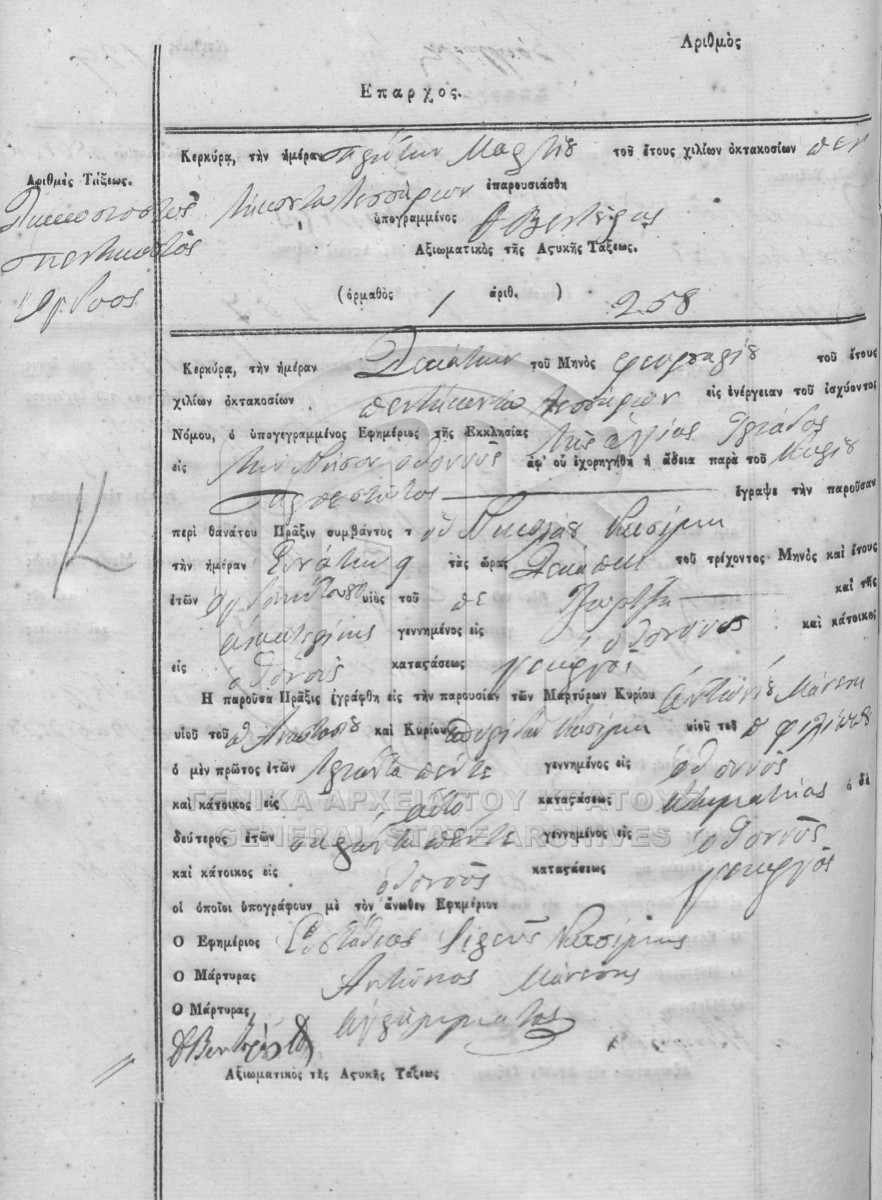 Αριθμὸς
Επαρχος.
Κερκύρα, τὴν ἡμέραν πρώτην Μαρτίου τοῦ ἔτους χιλίων ὀκτακοσίων πεν
Αριθμὸς Τάξεως.
τήκοντα τεσσάρων ἐπαρουσιάσθη
Διακοσιοστὸς
ὑπογραμμένος
πεντηκοστὸς
Αξιωματικὸς τῆς Αςυκῆς Τάξεως.
ὄγδοος
(ὁρμαθὸς 1 ἀριθ. ) 258
Κερκύρα, τὴν ἡμέραν Δεκάτην τοῦ Μηνὸς φευραρίου τοῦ ἔτους
χιλίων ὀκτακοσίων πεντήκοντα τεσσάρων εἰς ἐνέργειαν τοῦ ἰσχύοντος
Νόμου, ὁ ὑπογεγραμμένος Εφημέριος τῆς Εκκλησίας τῆς ἁγίας Τριάδος
εἰς τὴν Νῆσον οθονοὺς ἀφ' οὗ ἐχορηγήθη ἡ ἄδεια παρὰ τοῦ Κυρίου
προεστῶτος ἔγραψε τὴν παροῦσαν
περὶ θανάτου Πρᾶξιν συμβάντος τοῦ Νικολάου Κασίμη
τὴν ἡμέραν Εννάτην 9 τὰς ὥρας Δέκα τοῦ τρέχοντος Μηνὸς καὶ ἔτους
ἐτῶν υἱὸς τοῦ πε Τζώρτζη καὶ τῆς
αἰκατερίνης γεννημένος εἰς οθονοὺς καὶ κάτοικος
εἰς οθονοὺς καταςάσεως γεωργοῦ
Η παροῦσα Πρᾶξις ἐγράφθη εἰς τὴν παρουσίαν τῶν Μαρτύρων Κυρίου ἀντωνίου Μάνεση
υἱοῦ τοῦ π Ἀναστασίου καὶ Κυρίου Κασίμη υἱοῦ τοῦ π φιλίππου
ὁ μὲν πρῶτος ἐτῶν τριάντα πέντε γεννημένος εἰς οθονοὺς
καὶ κάτοικος εἰς καταςάσεως κτηματίας ὁ δὲ
δεύτερος ἐτῶν σαράντα πέντε γεννημένος εἰς οθονοὺς
καὶ κάτοικος εἰς οθονοὺς καταςάσεως γεωργὸς
οἱ ὁποῖοι ὑπογράφουν μὲ τὸν ἄνωθεν Εφημέριον
Ο Εφημέριος Εὐστάθιος Ιερεὺς Κασίμης
Ο Μάρτυρας Αντώνιος Μάνεσης
Ο Μάρτυρας ἀγράμματος
Αξιωματικὸς τῆς Αςυκῆς Τάξεως
ΓΕΝΙΚΑ ΑΡΧΕΙΑ ΤΟΥ ΚΡΑΤΟΥΣ
GENERAL STATE ARCHIVES